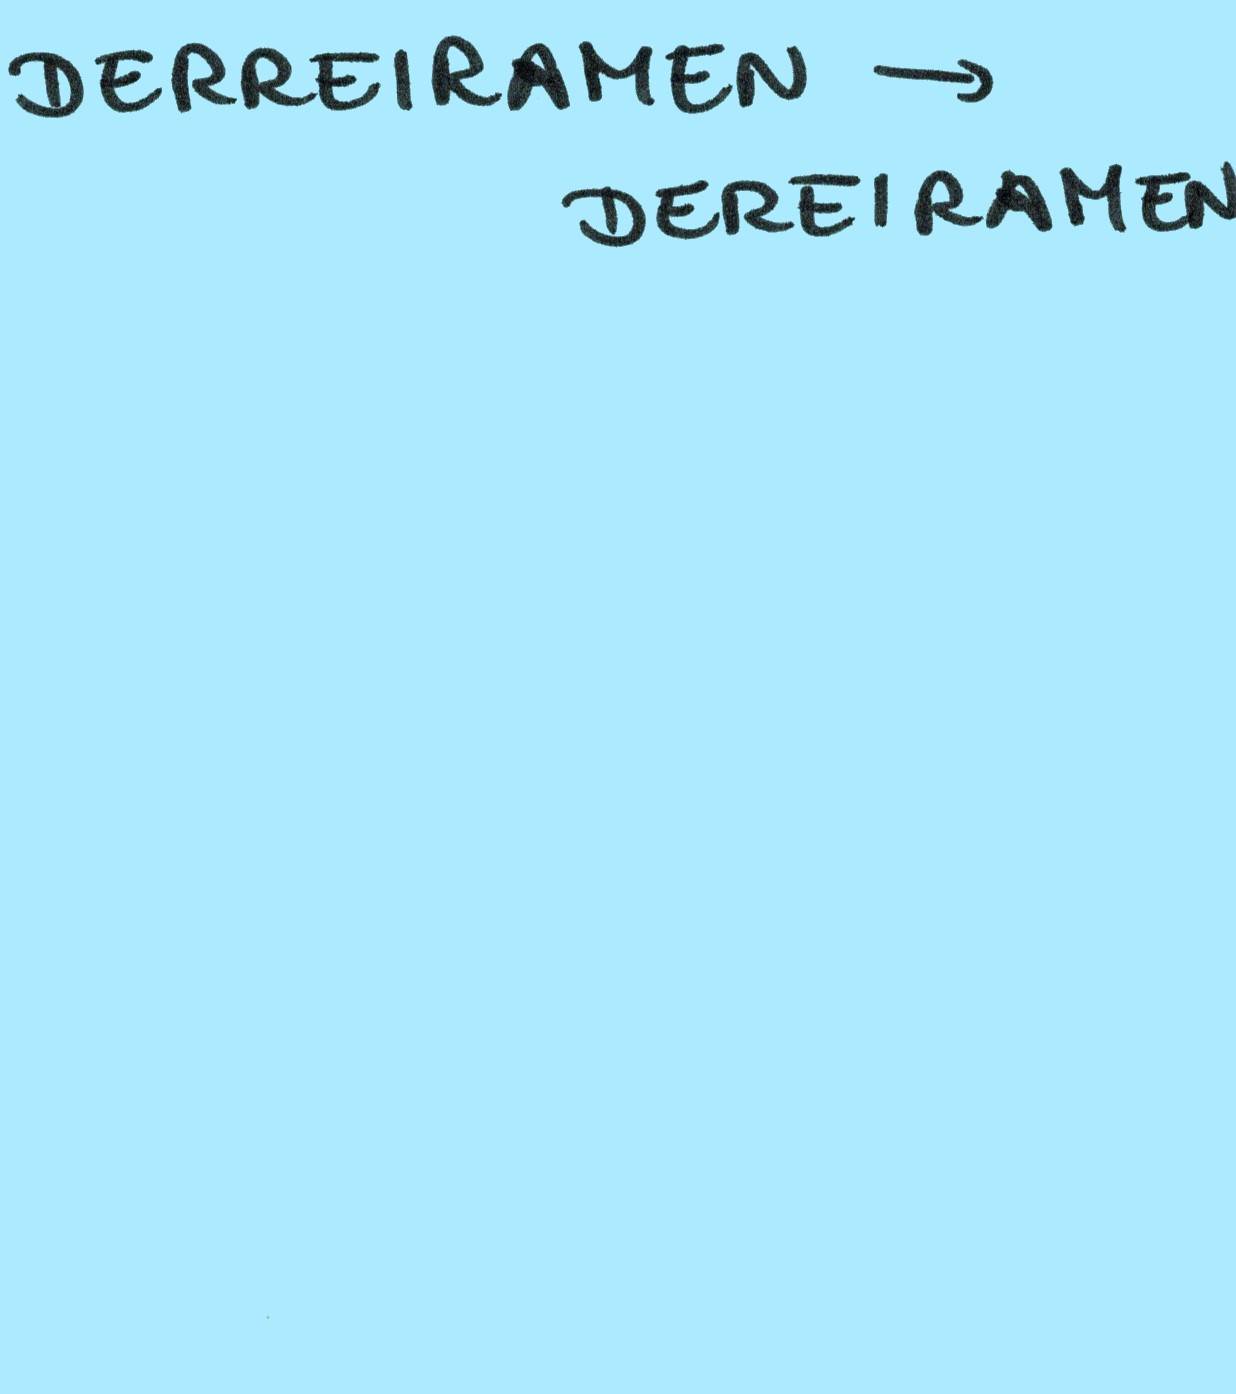 DERREIRAMEN →
DEREIRAMEN